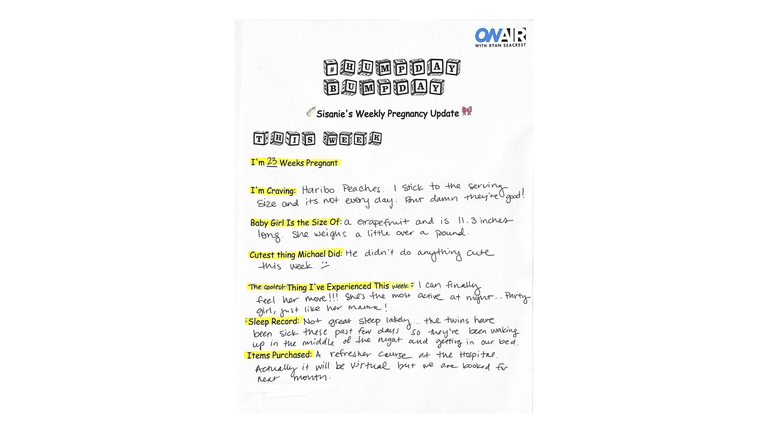 ON AIR
WITH RYAN SEACREST
#HUMPDAY
BUMPDAY
Sisanie's Weekly Pregnancy Update
THIS WEEK
I'm 23 Weeks Pregnant
I'm Craving: Haribo Peaches. I stick to the serving
size and its not every day. But damn they're good!
Baby Girl Is the Size Of: a grapefruit and is 11.3 inches
long. She weighs a little over a pound.
Cutest thing Michael Did: He didn't do anything cute
this week :/
The coolest Thing I've Experienced This week: I can finally
feel her move!!! She's the most active at night... Party
girl, just like her mama!
Sleep Record: Not great sleep lately... the twins have
been sick these past few days so they're been waking
up in the middle of the night and getting in our bed.
Items Purchased: A refresher course at the Hospital.
Actually it will be virtual but we are booked for
next month.